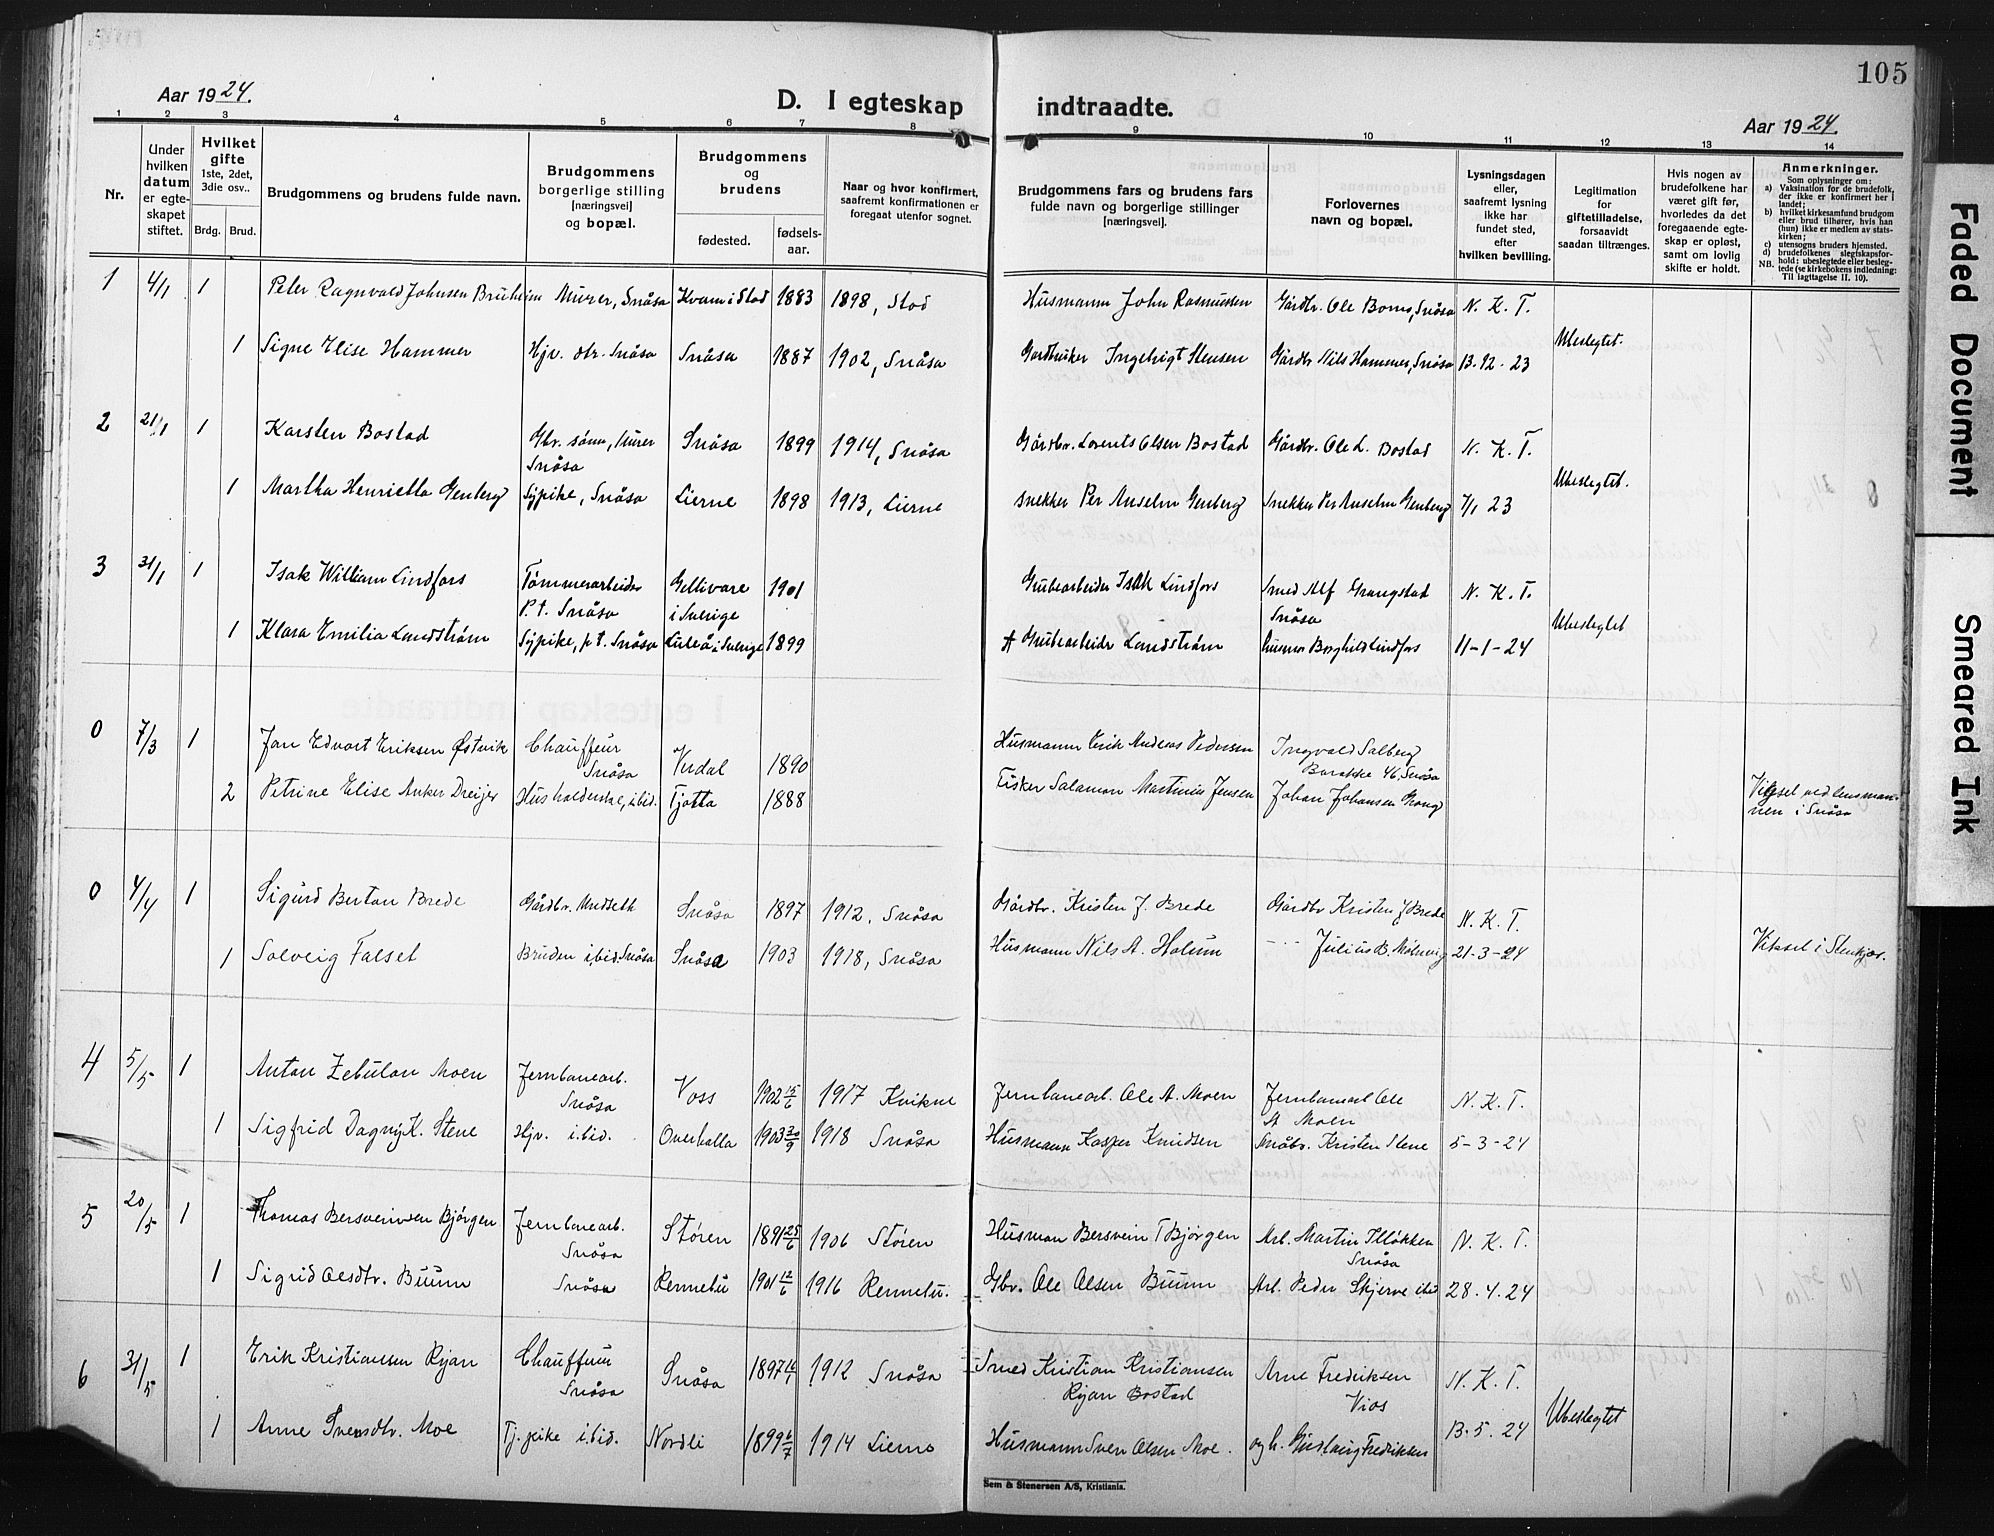 105
Aar 1924.
D. I egteskap indtraadte.
Aar 1924.
1 2 3 4 5 6 7 8 9 10 11 12 13 14
Nr.
Under hvilken datum er egteskapet stiftet.
Hvilket gifte 1ste, 2det, 3die osv..
Brdg. Brud.
Brudgommens og brudens fulde navn.
Brudgommens borgerlige stilling [næringsvei] og bopæl.
Brudgommens og brudens
fødested. fødselsaar.
Naar og hvor konfirmert, saafremt konfirmationen er foregaat utenfor sognet.
Brudgommens fars og brudens fars fulde navn og borgerlige stillinger [næringsvei].
Forlovernes navn og bopæl.
Lysningsdagen eller, saafremt lysning ikke har fundet sted, efter hvilken bevilling.
Legitimation for giftetilladelse, forsaavidt saadan tiltrænges.
Hvis nogen av brudefolkene har været gift før, hvorledes da det foregaaende egteskap er opløst, samt om lovlig skifte er holdt.
Anmerkninger.
Som oplysninger om:
a) Vaksination for de brudefolk, der ikke er konfirmert her i landet;
b) hvilket kirkesamfund brudgom eller brud tilhører, hvis han (hun) ikke er medlem av statskirken;
c) utensogns bruders hjemsted.
d) brudefolkenes slegtskapsforhold: ubeslegtede eller beslegtede (se kirkebokens indledning:
NB. Til iagttagelse II. 10).
1 4/1 1 Peter Ragnvald Johnsen Bruheim Murer, Snåsa Kvam i Stod 1883 1898, Stod Husmann John Rasmussen Gårdbr. Ole Boms, Snåsa N. K. T.
Ubeslegtet.
1 Signe Elise Hammer Hjv. dtr. Snåsa Snåsa 1887 1902, Snåsa Gardbruker Ingebrigt Stensen Gårdbr Nils Hammer, Snåsa 13. 12. 23
2 21/1 1 Karsten Bostad Gbr. sønn, murer Snåsa 1899 1914, Snåsa Gårdbr. Lorents Olsen Bostad Gårdbr. Ole L. Bostad N. K. T.
Snåsa
Ubeslegtet.
1 Martha Henrietta Genberg Sypike, Snåsa Lierne 1898 1913, Lierne Snekker Per Anselm Genberg Snekker Per Anselm Genberg 7/1 23
3 31/1 1 Isak William Lindfors Tømmerarbeider Gellivare 1901 Grubearbeider Isak Lindfors Smed Alf Grangstad N. K. T.
P. t. Snåsa i Sverige Snåsa
Ubeslegtet
1 Klara Emilia Lundstrøm Sypike, p t. Snåsa Luleå i Sverige 1899 Grubearbeider Lundstrøm Borghild Lindfors 11-1-24
0 7/3 1 Jan Edvart Eriksen Østvik Chauffeur Verdal 1890 Husmann Erik Andreas Pedersen Ingvald Salberg
Snåsa Barakke 46, Snåsa
2 Petrine Elise Anker Dreijer Husholderske, ibid. Tjøtta 1888 Fisker Salamon Martinus Jensen Johan Johansen Grong Vigsel ved lensmannen i Snåsa
0 4/4 1 Sigurd Bertan Brede Gårdbr. Andseth Snåsa 1897 1912, Snåsa Gårdbr. Kristen J. Brede Gårdbr Kristen J Brede N. K. T.
1 Solveig Falset Bruden ibid. Snåsa Snåsa 1903 1918, Snåsa Husmann Nils A. Holum Julius B. Molnvig 21-3-24 Viksel i Stenkjær.
4 5/5 1 Anton Zebulon Moen Jernbanearb. Voss 1902 15/6 1917 Kvikne Jernbanearb. Ole A. Moen Jernbanearb Ole N. K. T.
Snåsa A Moen
1 Sigfrid Dagny K. Stene Hjv. ibid. Overhalla 1903 20/9 1918 Snåsa Husmann Kasper Knudsen Småbr. Kristen Stene 5-3-24
5 20/5 1 Thomas Bersveinsen Bjørgen Jernbanearb. Støren 1891 25/6 1906 Støren Husman Bersvein T Bjørgen Arb. Martin Illøkken N. K. T.
Snåsa Snåsa
1 Sigrid Olsdtr. Buum Snåsa Rennebu 1901 12/6 1916 Rennebu. Gbr. Ole Olsen Buum Arb. Peder Skjerve ibid 28. 4. 24
6 31/5 1 Erik Kristiansen Rijan Chauffeur Snåsa 1897 1912 Snåsa Smed Kristian Kristiansen Arne Fredriksen N. K. T.
Snåsa Rijan Bostad Vios
Ubeslegtet
1 Anne Svensdtr. Moe Tj. pike ibid. Nordli 1899 6/7 1914 Lierne Husmann Sven Olsen Moe. og h. Gudlaug Fredriksen 13. 5. 24
Sem & Stenersen A/S, Kristiania.
Faded Document
Smeared Ink